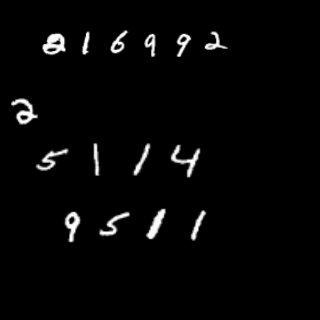 216992
2
5114
9511